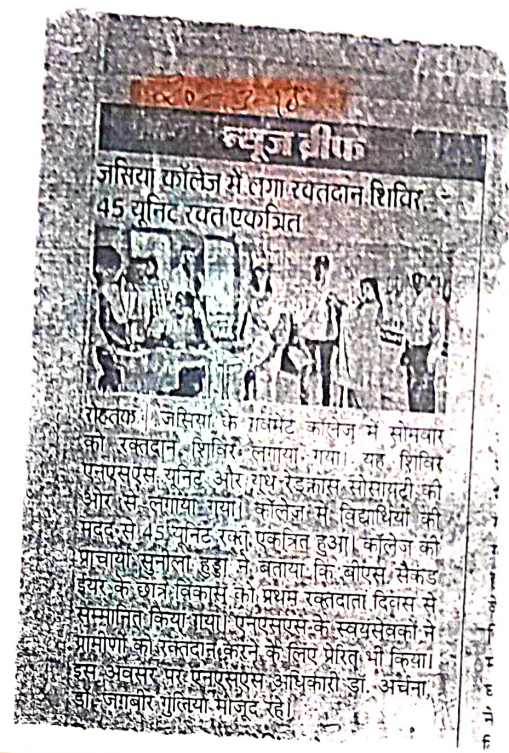 न्यूज ब्रीफ
जसिया कॉलेज में लगा रक्तदान शिविर,
45 यूनिट रक्त एकत्रित
रोहतक | जसिया के गवर्मेंट कॉलेज में सोमवार
को रक्तदान शिविर लगाया गया। यह शिविर
एनएसएस यूनिट और यूथ रेडक्रास सोसायटी की
ओर से लगाया गया। कॉलेज में विद्यार्थियों की
मदद से 45 यूनिट रक्त एकत्रित हुआ। कॉलेज की
प्राचार्या सुनीला हुड्डा ने बताया कि बीएस सैकंड
ईयर के छात्र विकास को प्रथम रक्तदाता दिवस से
सम्मानित किया गया। एनएसएस के स्वयंसेवकों ने
ग्रामीणों को रक्तदान करने के लिए प्रेरित भी किया।
इस अवसर पर एनएसएस अधिकारी डॉ. अर्चना,
डॉ. जगबीर गुलिया मौजूद रहे।